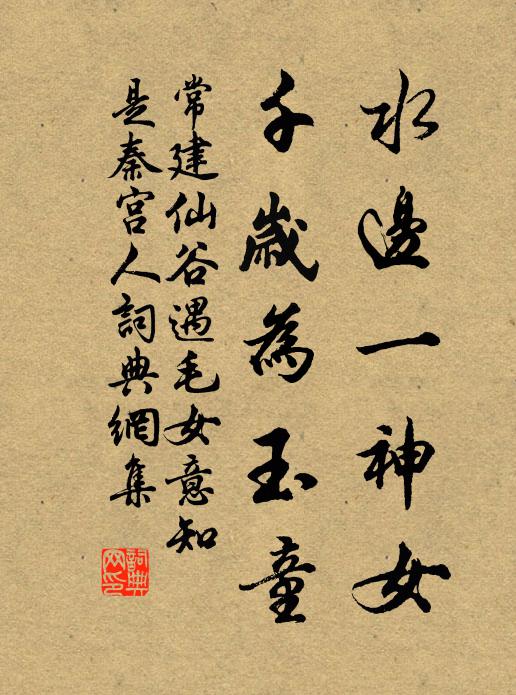 水邊一神女
千歲為玉童
常建仙谷遇毛女意知
是秦宮人詞典網集
詞典
网印